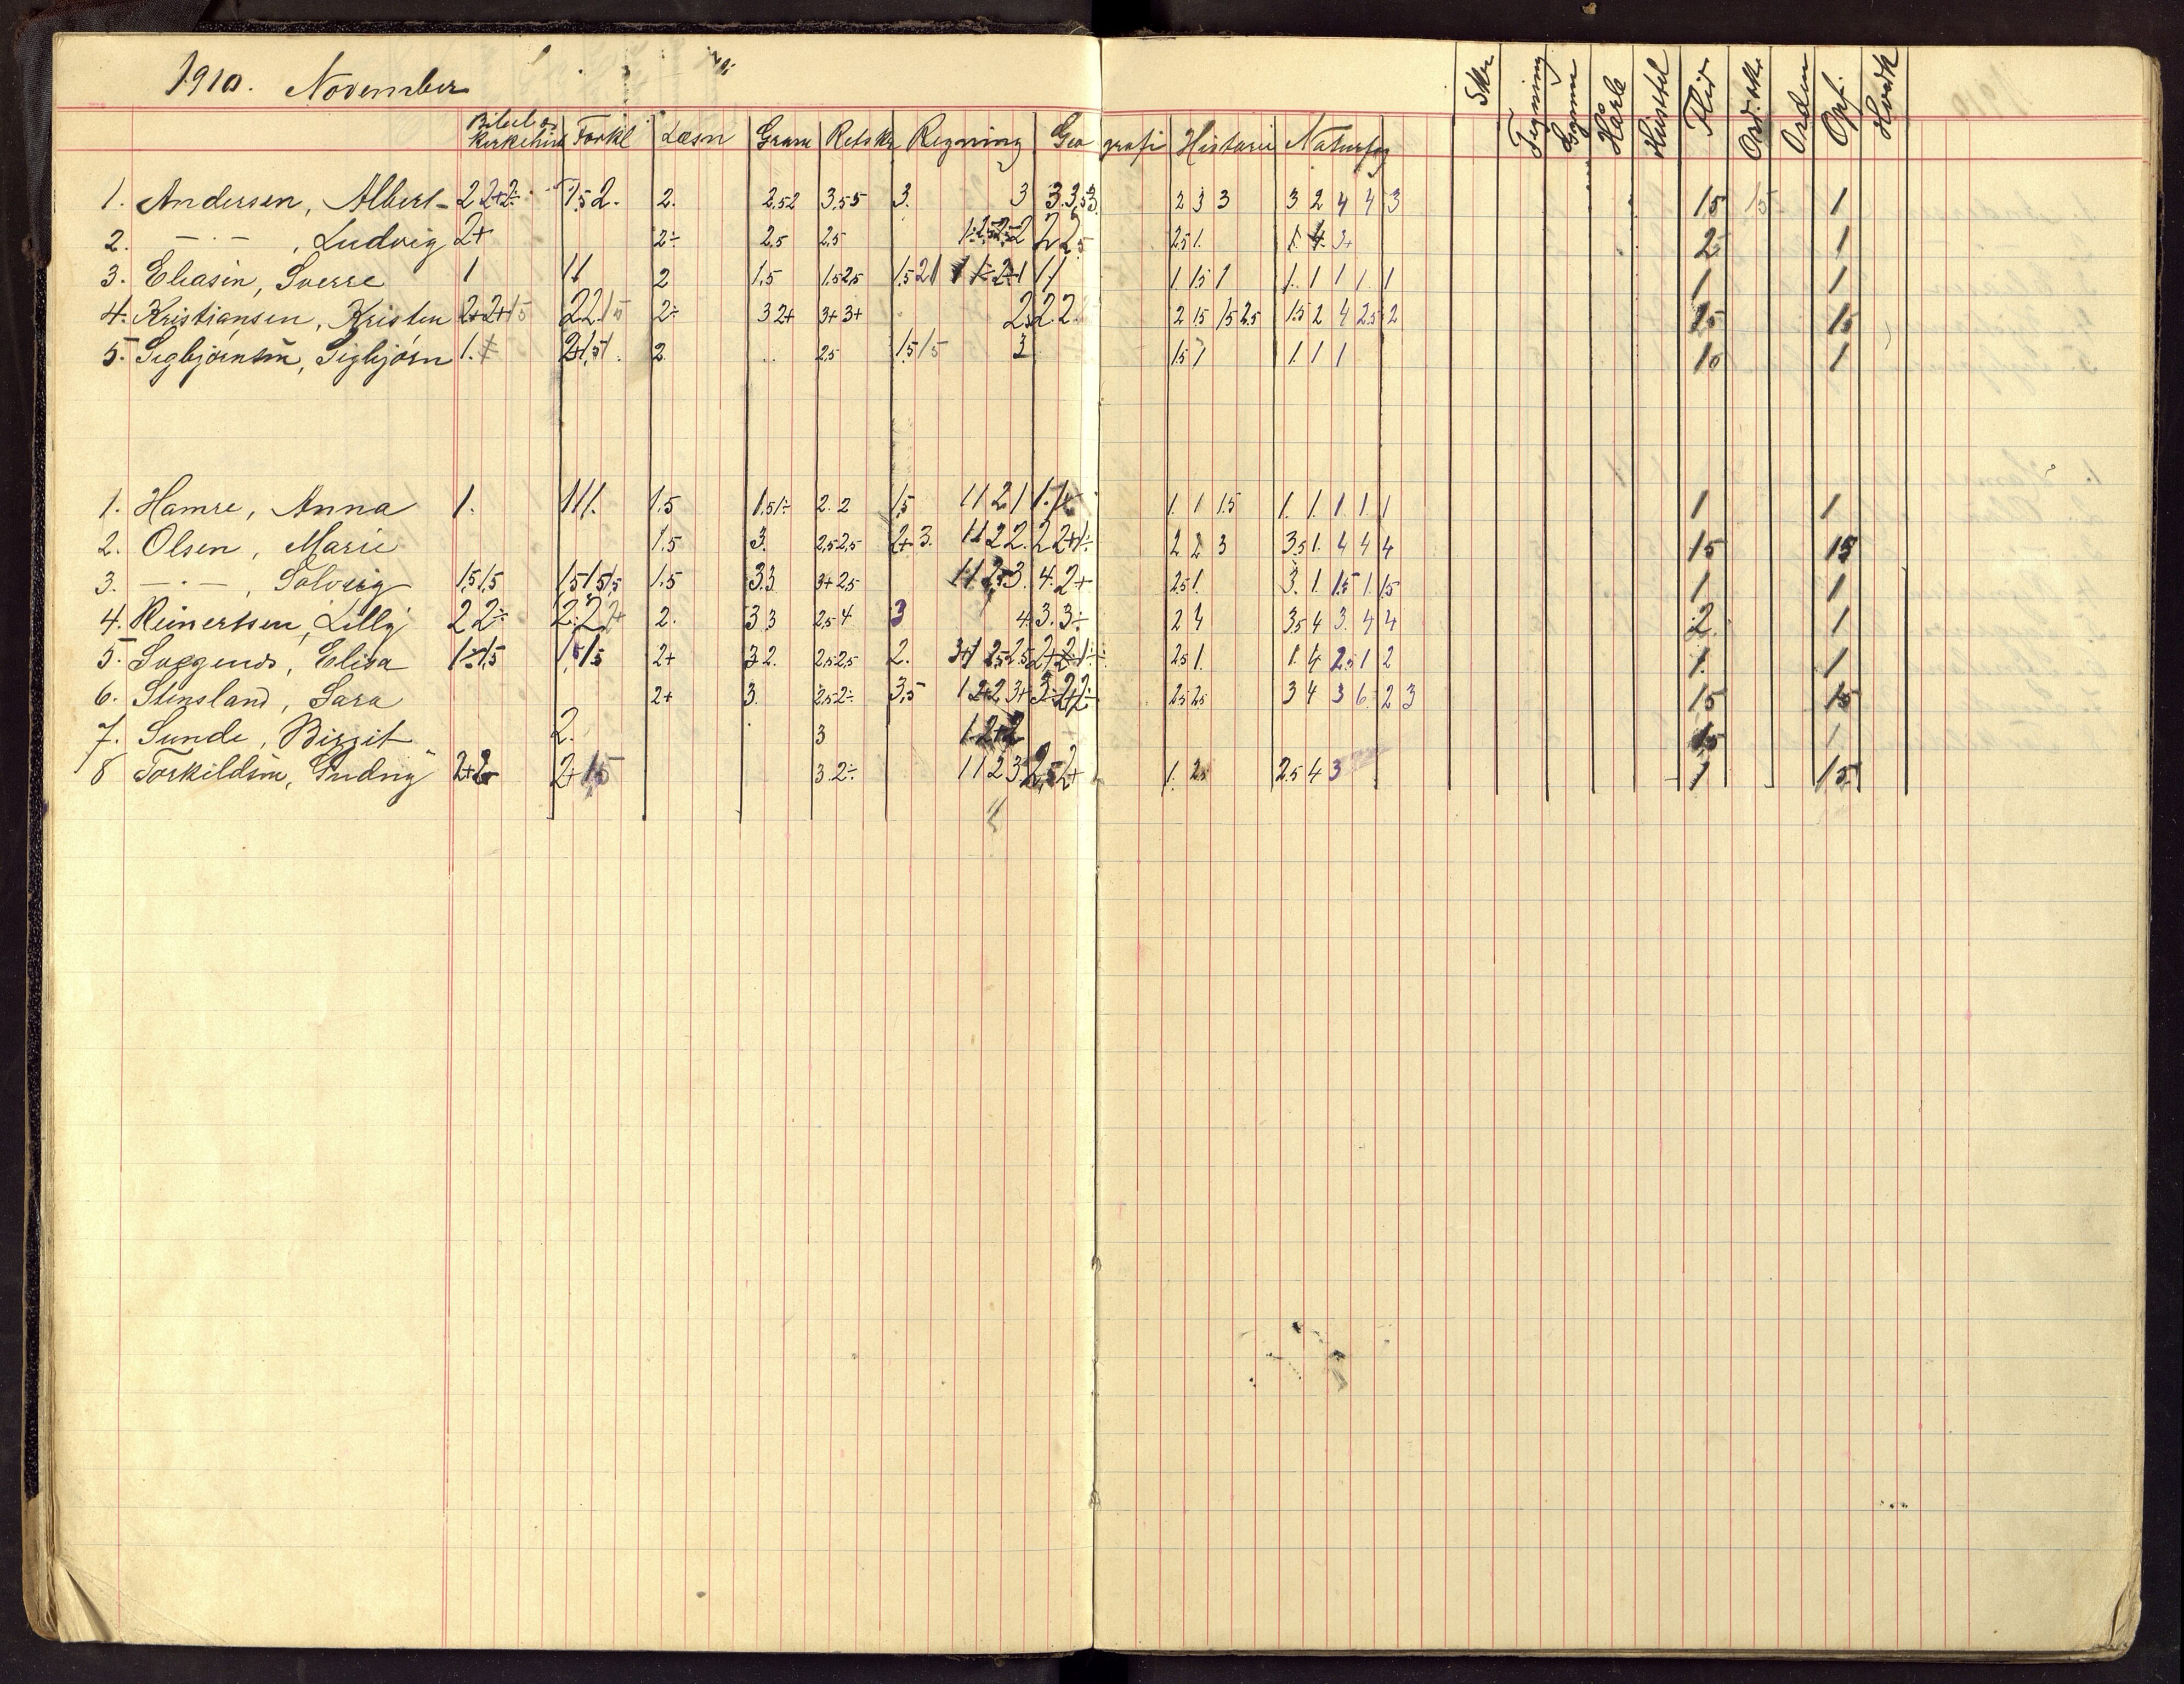 1910. November
Bibel og Kirkehist Forkl Læsn Gram Retskr Regning Geografi Historie Naturfag Skr Tegning Gymn Håarb Flid Ord.sk. Orden Opf.
1. Andersen, Albert 2 2+2÷ 1,5 2. 2. 2,5 2 3,5 5 3. 3 3.3,5 3 2 3 3 3 2 4 4 3 15 15 1
2. —·— , Ludvig 2+ 2÷ 2,5 2,5 2 2,5 2,5 1. 1. 4. 3+ 2 1
3. Eliasen, Sverre 1 11 2 1,5 1,5 2,5 1,5 2 1 1 1 1 1,5 1 1. 1 1 1. 1 1 1
4. Kristiansen, Kristen 2+2+1,5 2 2 1,5 2÷ 3 2+ 3+ 3+ 2,5 2 2 2 1,5 1,5 2,5 1,5 2 4 2,5 2 15 15
5. Sigbjørnsen, Sigbjørn 1. 2+1,5 1. 2 2,5 1,5 1,5 3 1,5 1 1. 1 1 1
1. Hamre, Anna 1. 1 1 1. 1,5 1,5 1÷ 2. 2 1,5 1 1 2 1 1. 1 1 1,5 1. 1. 1. 1 1 1 1
2. Olsen, Marie 1.5 3. 2,5 2,5 2+ 3. 1 1 2 2. 2 2+ 1÷ 2 2 3 3,5 1. 4 4 4 15 15
3. —·— , Solveig 1,5 1,5 1,5 1,5 1,5 1.5 3 3 3+ 2,5 1 1 2,5 3. 4. 2+ 2,5 1. 3. 1 1,5 1. 1,5 1 1
4. Reinertsen, Lilly 2 2÷ 2. 2 2+ 2. 3 3 2,5 4 3 4 3. 3÷ 2 4 3,5 4 3. 4 4 2. 1
5. Svegends, Elisa 1÷1,5 1,5 1,5 2+ 3 2. 2,5 2,5 2. 3+ 1 2,5 2,5 2,5 1. 1. 4 2,5 1 2 1. 1
6. Stensland, Sara 2+ 3. 2,5 2÷ 3,5 1 2+2 3+ 2,5 2,5 3 4 3 6 2 3 15 15
7. Sunde, Birgit 2. 3 1 2+2 15 1
8 Torkildsen, Gudny 2+2 2+ 1,5 3. 2÷ 1 1 2 3 2,5 2+ 1. 2,5 2.5 4 3 1 15